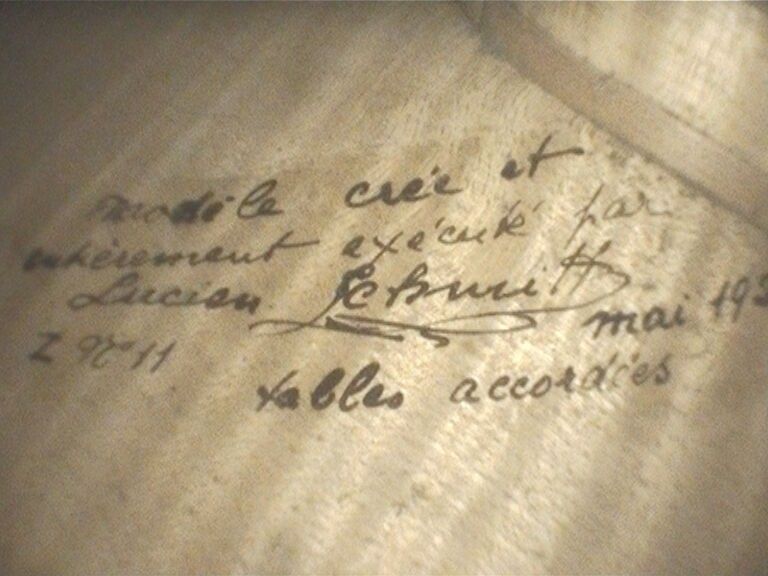 modèle crée et
entièrement exécuté par
Lucien Schmitt
mai 193
I N° 11
tables accordées